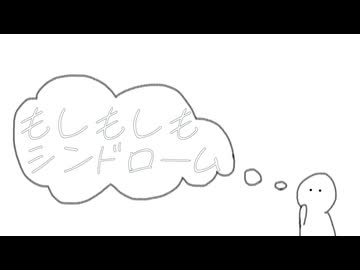 もしもしも
シンドローム